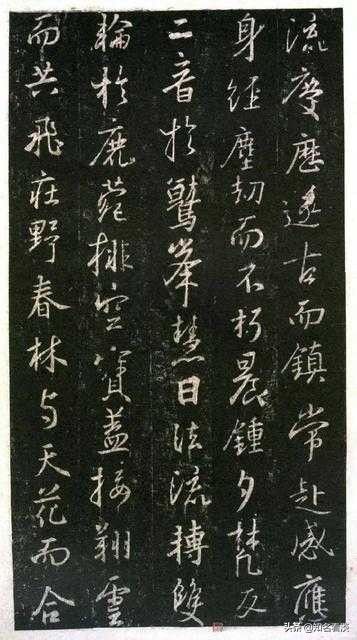 流慶歷遂古而鎮常赴感應
身經塵劫而不朽晨鍾夕梵交
二音於鷲峯慧日法流轉雙
輪於鹿菀排空寶蓋接翔雲
而共飛莊野春林与天花而合
头条